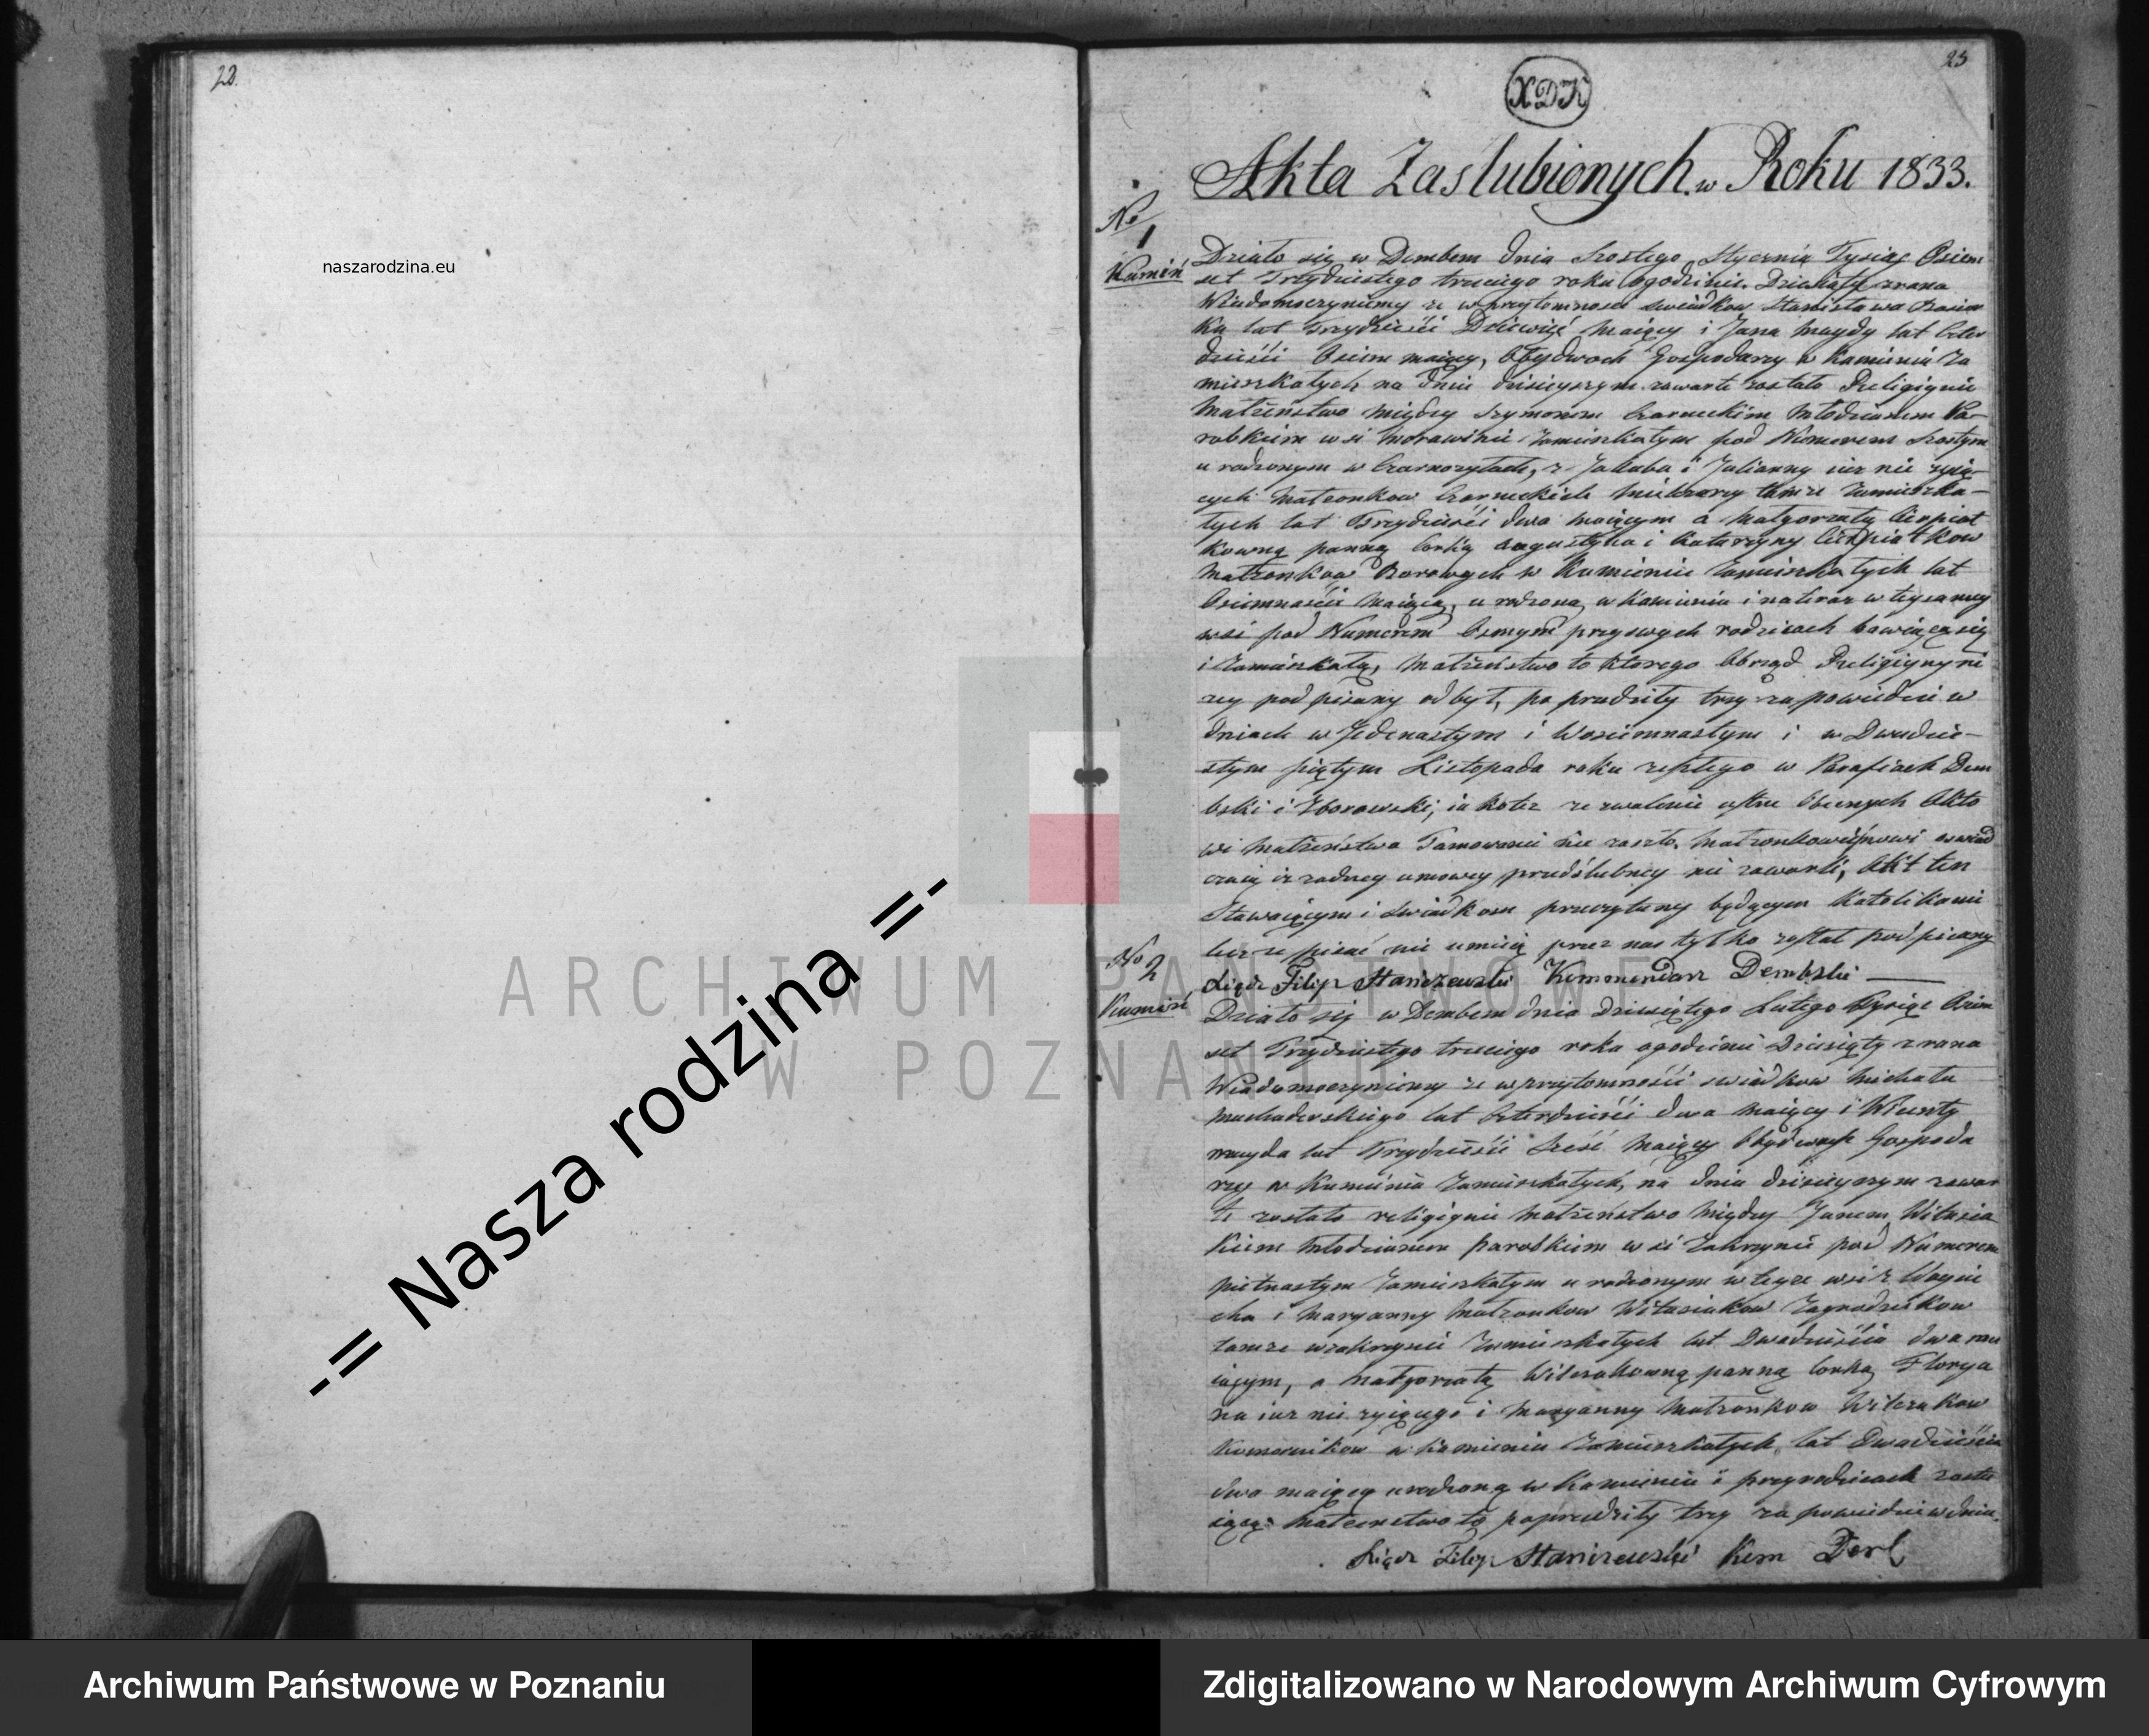 22.
naszarodzina.eu
23
XDK
Akta Zaslubionych w Roku 1833.
No
1
Kamiń
Działo się w Dembem dnia szostego Stycznia Tysiąc Osiem
set Trzydziestego trzeciego roku ogodzinie Dziesiąty zrana
Wiadomoczyniemy ze wprzytomnosci swiadkow Stanisława
ka lat Trzydzieści Dziewięć maiący i Jana Maydy lat Czter
dzieści Osiem maiący, Obydwoch Gospodarzy w Kamieniu Za
mieszkałych na dniu dzisieyszym zawarte zostało Religiynie
Małżeństwo między Szymonem Czarneckim Młodzianem Pa-
robkiem wsi Morawinie Zamieszkałym pod Numerem szostym
urodzonym w Czarnozyłach, z Jakuba i Julianny iuz nie zyią-
cych Małzonkow Czarneckich tamze Zamieszka-
łych lat Trzydzieści dwa maiącym a Małgorzatą Cierpiat
kowną panną Corką Augustyna i Katarzyny Cierpiatkow
Małzonkow Borowych w Kamieniu Zamieszkałych lat
Osiemnaście maiącą, urodzoną w Kamieniu i nateraz w teysamey
wsi pod Numerem Osmym przyswych rodzicach bawiącą się
i Zamieszkałą, Małżeństwo to ktorego Obrząd Religiyny ni
zey podpisany odbył, poprzedziły trzy zapowiedzi w
dniach w Jedenastym i Wosiemnastym i w Dwudzie-
stym piątym Listopada roku zeszłego w Parafiach Dem
bski i Zborowski, iakotez zezwolenie ustne Obecnych Akto
wi Małżeństwa Tamowanie nie zaszło, Małzonkowie nowi oswiad
czaią iz zadney umowy przedślubney nie zawarli, Akt ten
Stawaiącym i Swiadkom przeczytany będącym Katolikami
lecz ze pisać nie umieią przez nas tylko został podpisany
Xiądz Filip Staniszewski Kommendarz Dembski
No 2
Kamień
Działo się w Dembem dnia dziesiątego Lutego Tysiąc Osiem
set Trzydziestego trzeciego roku ogodzinie Dziesiąty zrana
Wiadomoczyniemy ze wprzytomności swiadkow Michała
lat Czterdzieści dwa maiący i Wincenty
mayda lat Trzydzieści Sześć maiący Obydwoch Gospoda
rzy w Kamieniu Zamieszkałych, na dniu dzisieyszym zawar
te zostało religiynie małżeństwo między Janem Witasia
kiem Młodzianem parobkiem wsi Zakrzynie pod Numerem
pietnastym Zamieszkałym urodzonym wteyze wsi z Woycie
cha i Maryanny Małzonkow Witasiakow Zagrodnikow
tamze wzakrzynie Zamieszkałych lat Dwadzieścia dwa ma
iącym, a Małgorzatą Witczakowną panną Corką Florya
na iuz nie zyiącego i Maryanny Małzonkow Witczakow
Komornikow w Kamieniu Zamieszkałych lat Dwadzieścia
dwa maiącą urodzoną w Kamieniu i przyrodzicach zosta
iącą. Małzenstwo to poprzedziły trzy zapowiedzi w dniu.
Xiądz Filip Staniszewski Kom
ARCHIWUM PAŃSTWOWE
W POZNANIU
-= Nasza rodzina =-
Archiwum Państwowe w Poznaniu
Zdigitalizowano w Narodowym Archiwum Cyfrowym